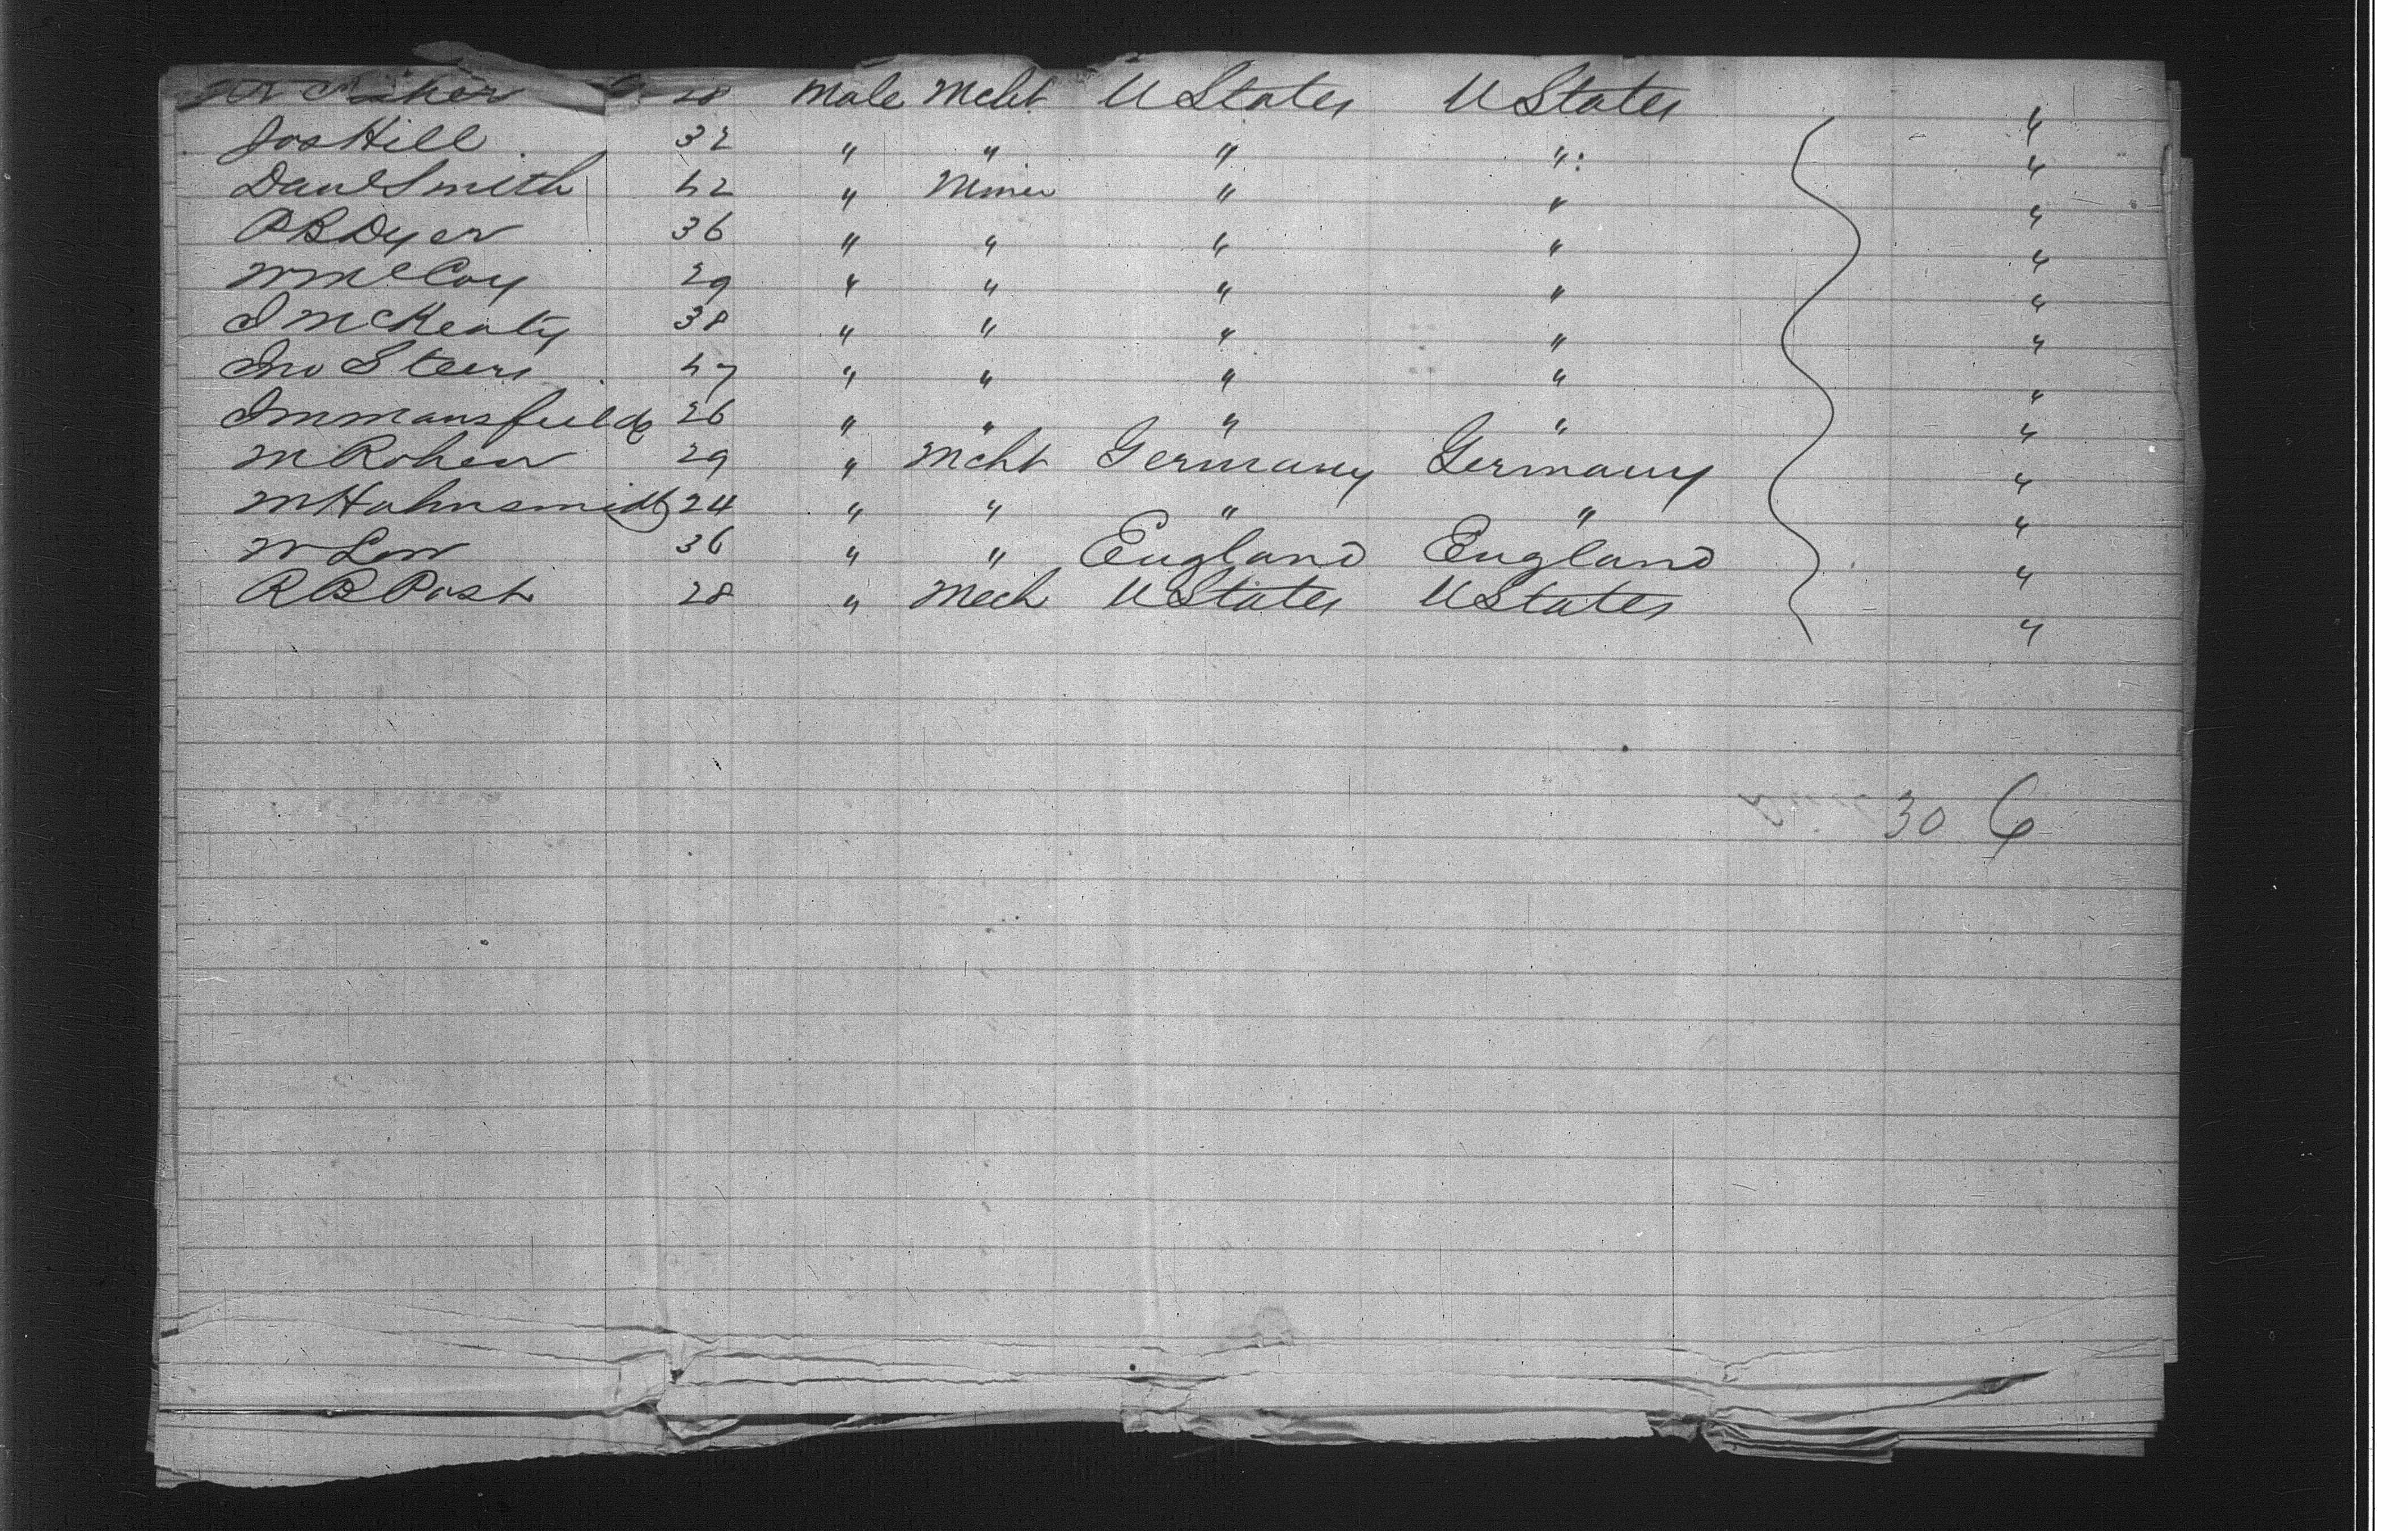 28 Male Mcht U States U States "
Jos Hill 32 " " " " "
Danl Smith 42 " Miner " " "
P B Dyer 36 " " " " "
W McCoy 29 " " " " "
J McKeaty 38 " " " " "
Jno Steers 47 " " " " "
J M Mansfield 26 " " " " "
M Rohen 29 " Mcht Germany Germany "
M Hahnsmidt 24 " " " " "
W Low 36 " " England England "
R B Post 28 " Mech U States U States "
30 6